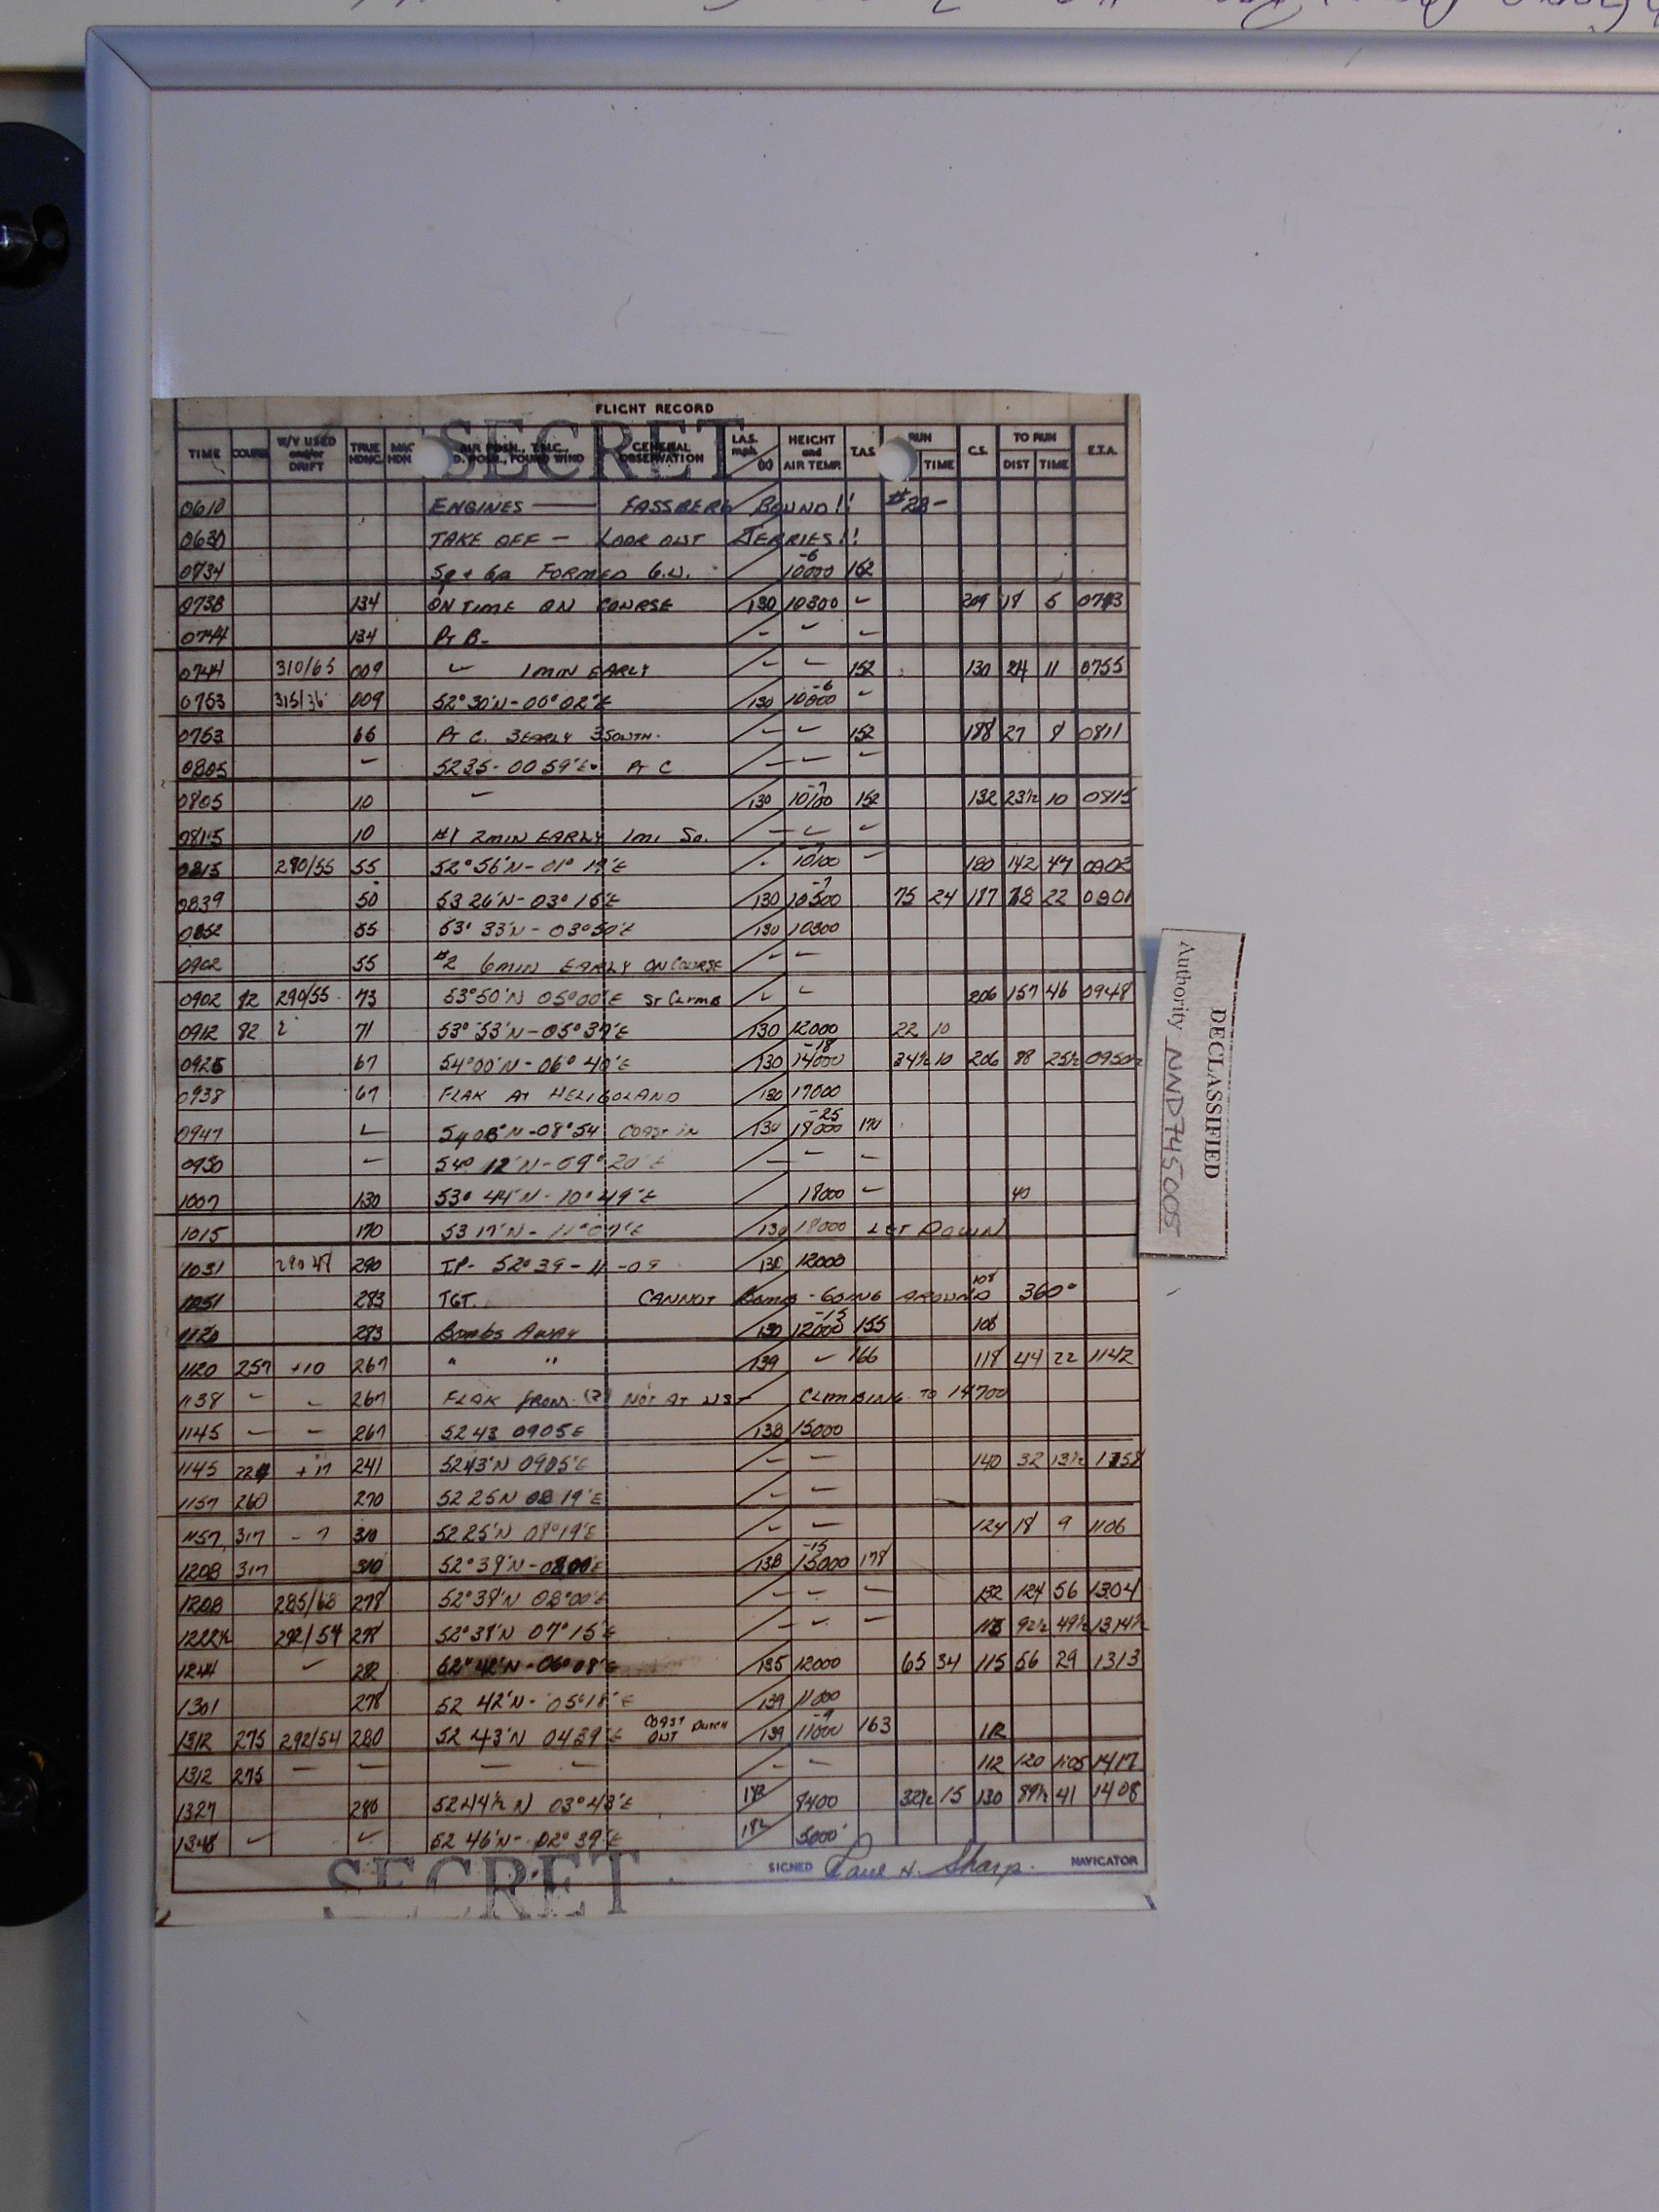 FLIGHT RECORD
SECRET
TIME COURSE W/V USED and/or DRIFT TRUE HDNG. MAG HDN AIR POSN., T.M.G., D. POSN., FOUND WIND GENERAL OBSERVATION I.A.S. mph. HEIGHT and AIR TEMP. T.A.S. RUN TIME G.S. TO RUN DIST TIME E.T.A.
0610 ENGINES — FASSBERG BOUND!! #28-
0630 TAKE OFF - LOOK OUT JERRIES!!
0734 FORMED -6 10000 152
0738 134 ON TIME ON COURSE 130 10300 ✓ 209 18 5 0743
0744 134 PT B- - ✓ ✓
0744 310/65 009 ✓ 1 MIN EARLY ✓ ✓ 152 130 24 11 0755
0753 315/36 009 52°30'N-00°02'E 130 -6 10000 ✓
0753 66 PT C. 3 EARLY 3 SOUTH. - - 152 188 27 8 0811
0805 - 5235-0059'E. PT C - - -
0805 10 ✓ 130 -7 10100 152 132 23½ 10 0815
0815 10 #1 2MIN EARLY 1 mi So. - ✓ ✓
0815 290/55 55 52°56'N-01° E 10100 - 180 142 47 0902
0839 50 53 26'N-03°15'E 130 -7 10500 75 24 187 68 22 0901
0852 55 53° 33'N-03°50'E 130 10300
0902 55 #2 6MIN EARLY ON COURSE - -
0902 82 290/55 73 53°50'N 05°00'E ST CLIMB ✓ ✓ 206 157 46 0948
0912 82 71 53°53'N-05°37'E 130 12000 22 10
0925 67 54°00'N-06°40'E 130 -18 14000 34½ 10 206 88 25½ 0950½
0938 67 FLAK AT HELIGOLAND 130 17000
0947 ✓ 54 08'N-08°54' COAST IN 130 -25 18000 170
0950 - 54° 12'N-09°20'E - - -
1007 130 53° 44'N-10°49'E 18000 ✓ 40
1015 170 53 17'N-11°07'E 130 18000 LET DOWN
1031 290 48 290 I.P- 52°39-11-09 130 12000
1051 283 TGT. CANNOT Bomb - GOING AROUND 108 360°
1120 283 Bombs AWAY 130 -15 12000 155 108
1120 257 +10 267 " " 139 ✓ 166 118 44 22 1142
1138 - - 267 FLAK from (?) NOT AT US CLIMBING TO 14700
1145 - - 267 52 43 0905E 138 15000
1145 224 +17 241 5243'N 0905'E - - 140 32 13½ 1158
1157 260 270 52 25N 08 19'E - -
1157 317 - 7 310 52 25'N 08°19'E ✓ - 124 18 9 1106
1208 317 310 52°39'N-0800'E 138 -15 15000 178
1208 285/68 278 52°38'N 08°00'E - - - 132 124 56 1304
1222½ 292/54 278 52°38'N 07°15'E - ✓ - 115 92½ 49½ 1314½
1244 ✓ 282 52°42'N-06°08'E 135 12000 65 34 115 56 29 1313
1301 278 52 42'N-05°18'E 139 11000
1312 275 292/54 280 52 43'N 0439'E COAST OUT DUTCH 139 -9 11000 163 112
1312 275 - - - - - - 112 120 1:05 1417
1327 280 5244½ N 03°43'E 182 8400 32½ 15 130 89½ 41 1408
1348 ✓ ✓ 52 46'N- 02°39'E 182 5000'
SIGNED Paul H. Sharp. NAVIGATOR
SECRET
DECLASSIFIED
Authority NND745005